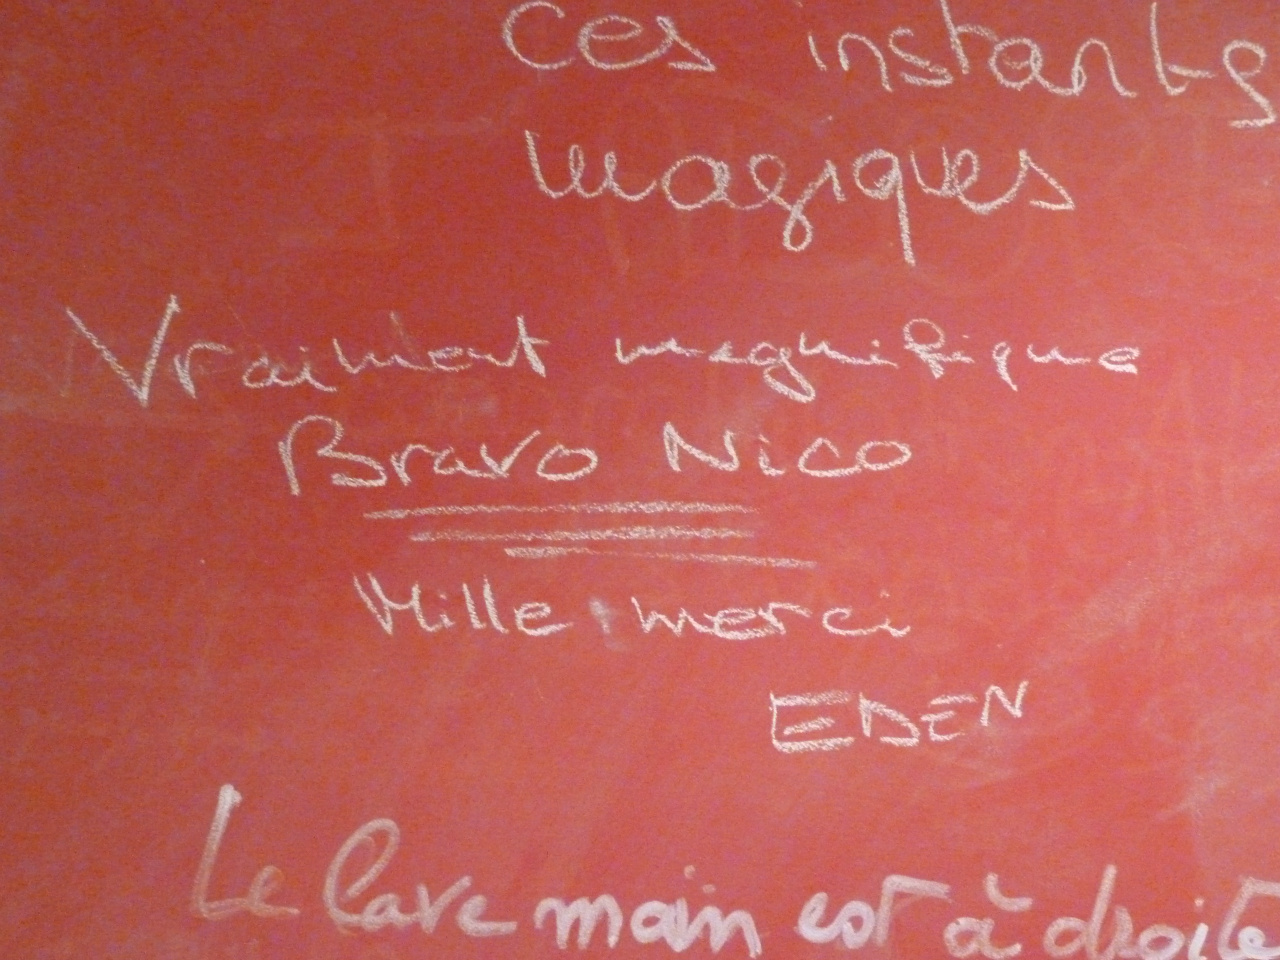 ces instants
magiques
Vraiment magnifique
Bravo Nico
Mille merci
EDEN
Le lave main est à droite